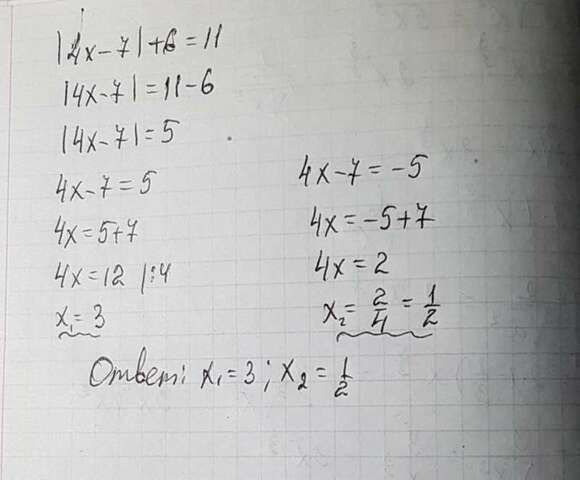 |4x-7|+6=11
|4x-7|=11-6
|4x-7|=5
4x-7=5
4x=5+7
4x=12 |:4
x₁=3
4x-7=-5
4x=-5+7
4x=2
x₂=2/4=1/2
Ответ: x₁=3; x₂=1/2